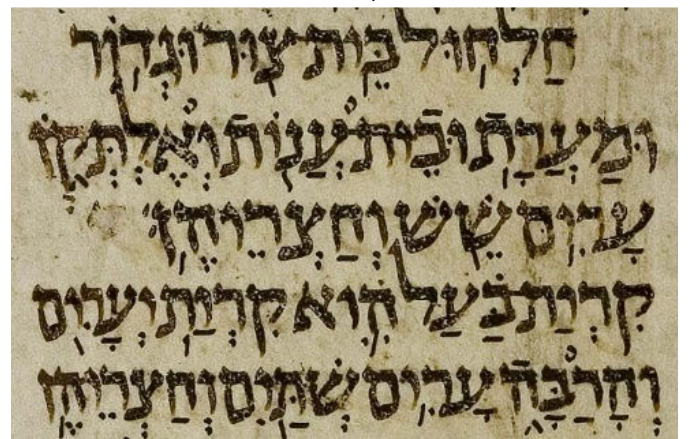 חַלְחוּל בֵּית צוּר וּגְדוֹר
וּמַעֲרָת וּבֵית עֲנוֹת וְאֶלְתְּקֹן
עָרִים שֵׁשׁ וְחַצְרֵיהֶן׃
קִרְיַת בַּעַל הִיא קִרְיַת יְעָרִים
וְהָרַבָּה עָרִים שְׁתַּיִם וְחַצְרֵיהֶן